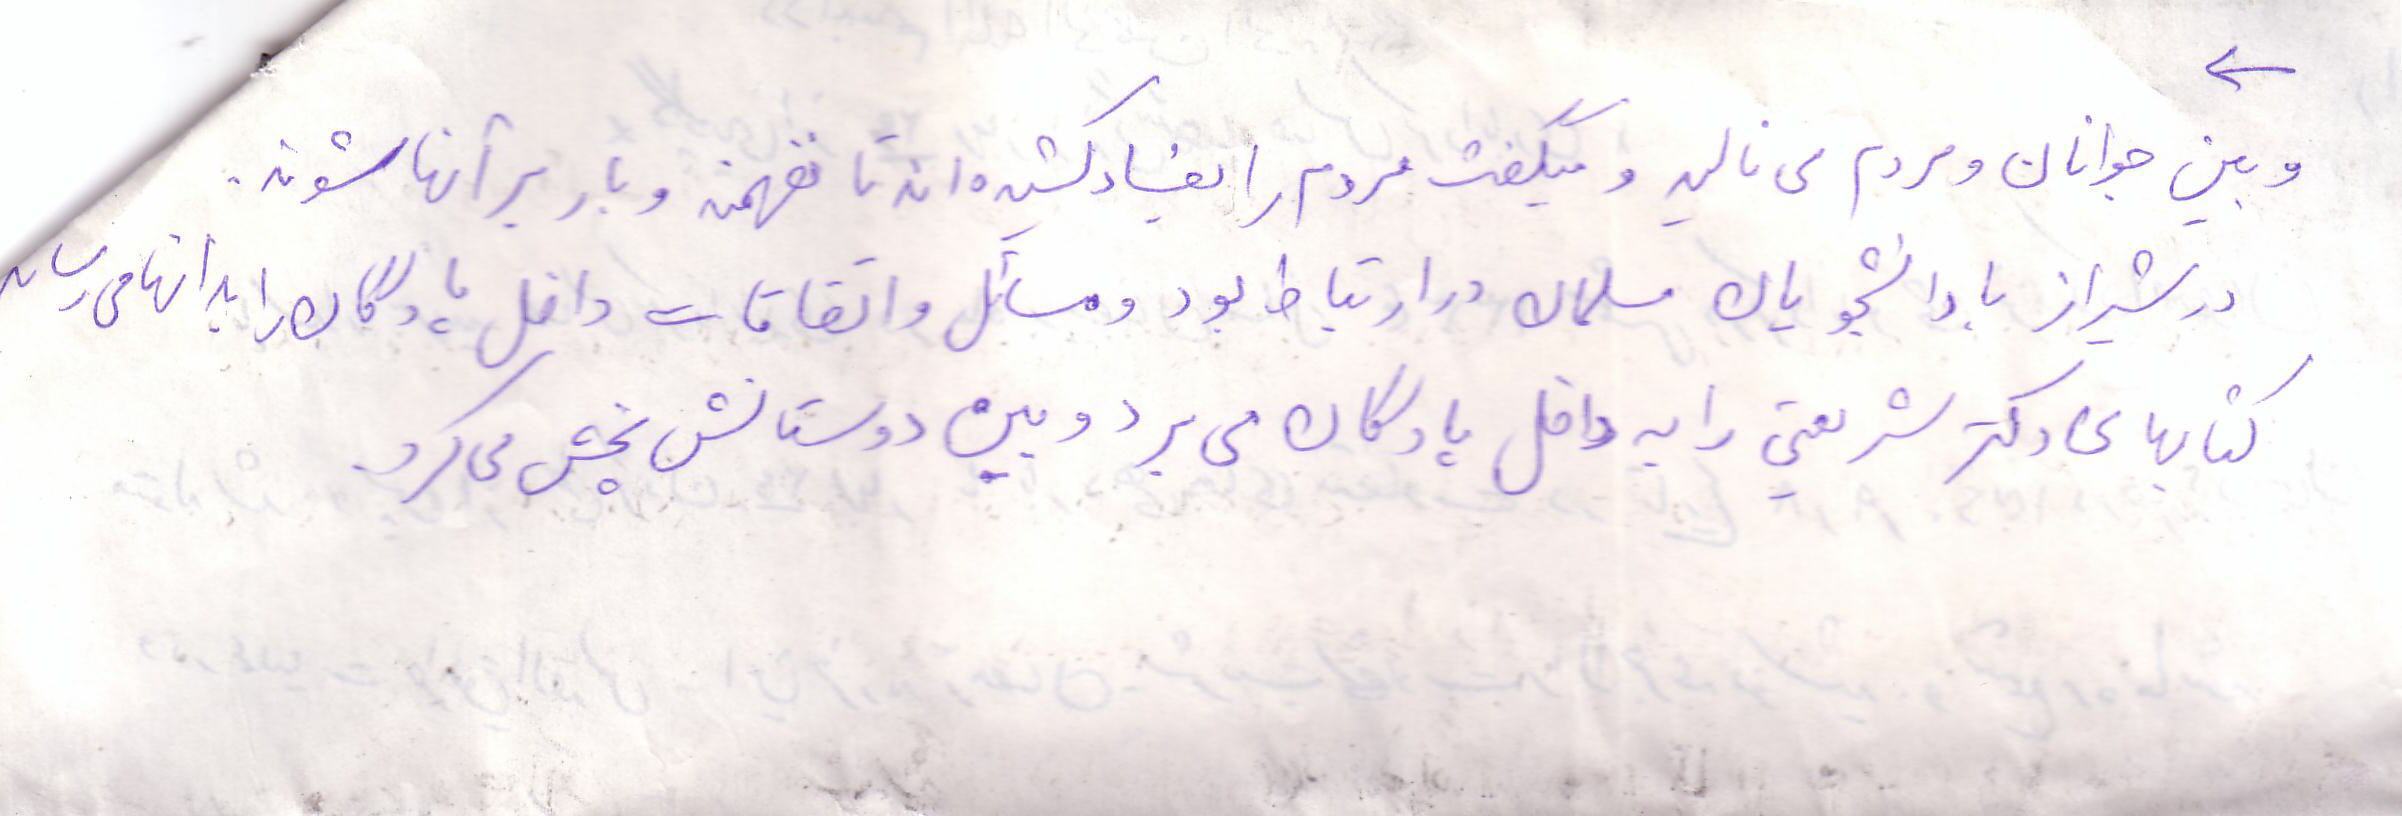 ←
و بین جوانان و مردم می نالید و میگفت مردم را بفساد کشیده اند تا نفهمند و بار بر آنها شوند.
در شیراز با دانشجویان مسلمان در ارتباط بود و مسائل و اتفاقات داخل پادگان را به آنها می رساند
کتابهای دکتر شریعتی را به داخل پادگان می برد و بین دوستانش پخش می کرد.